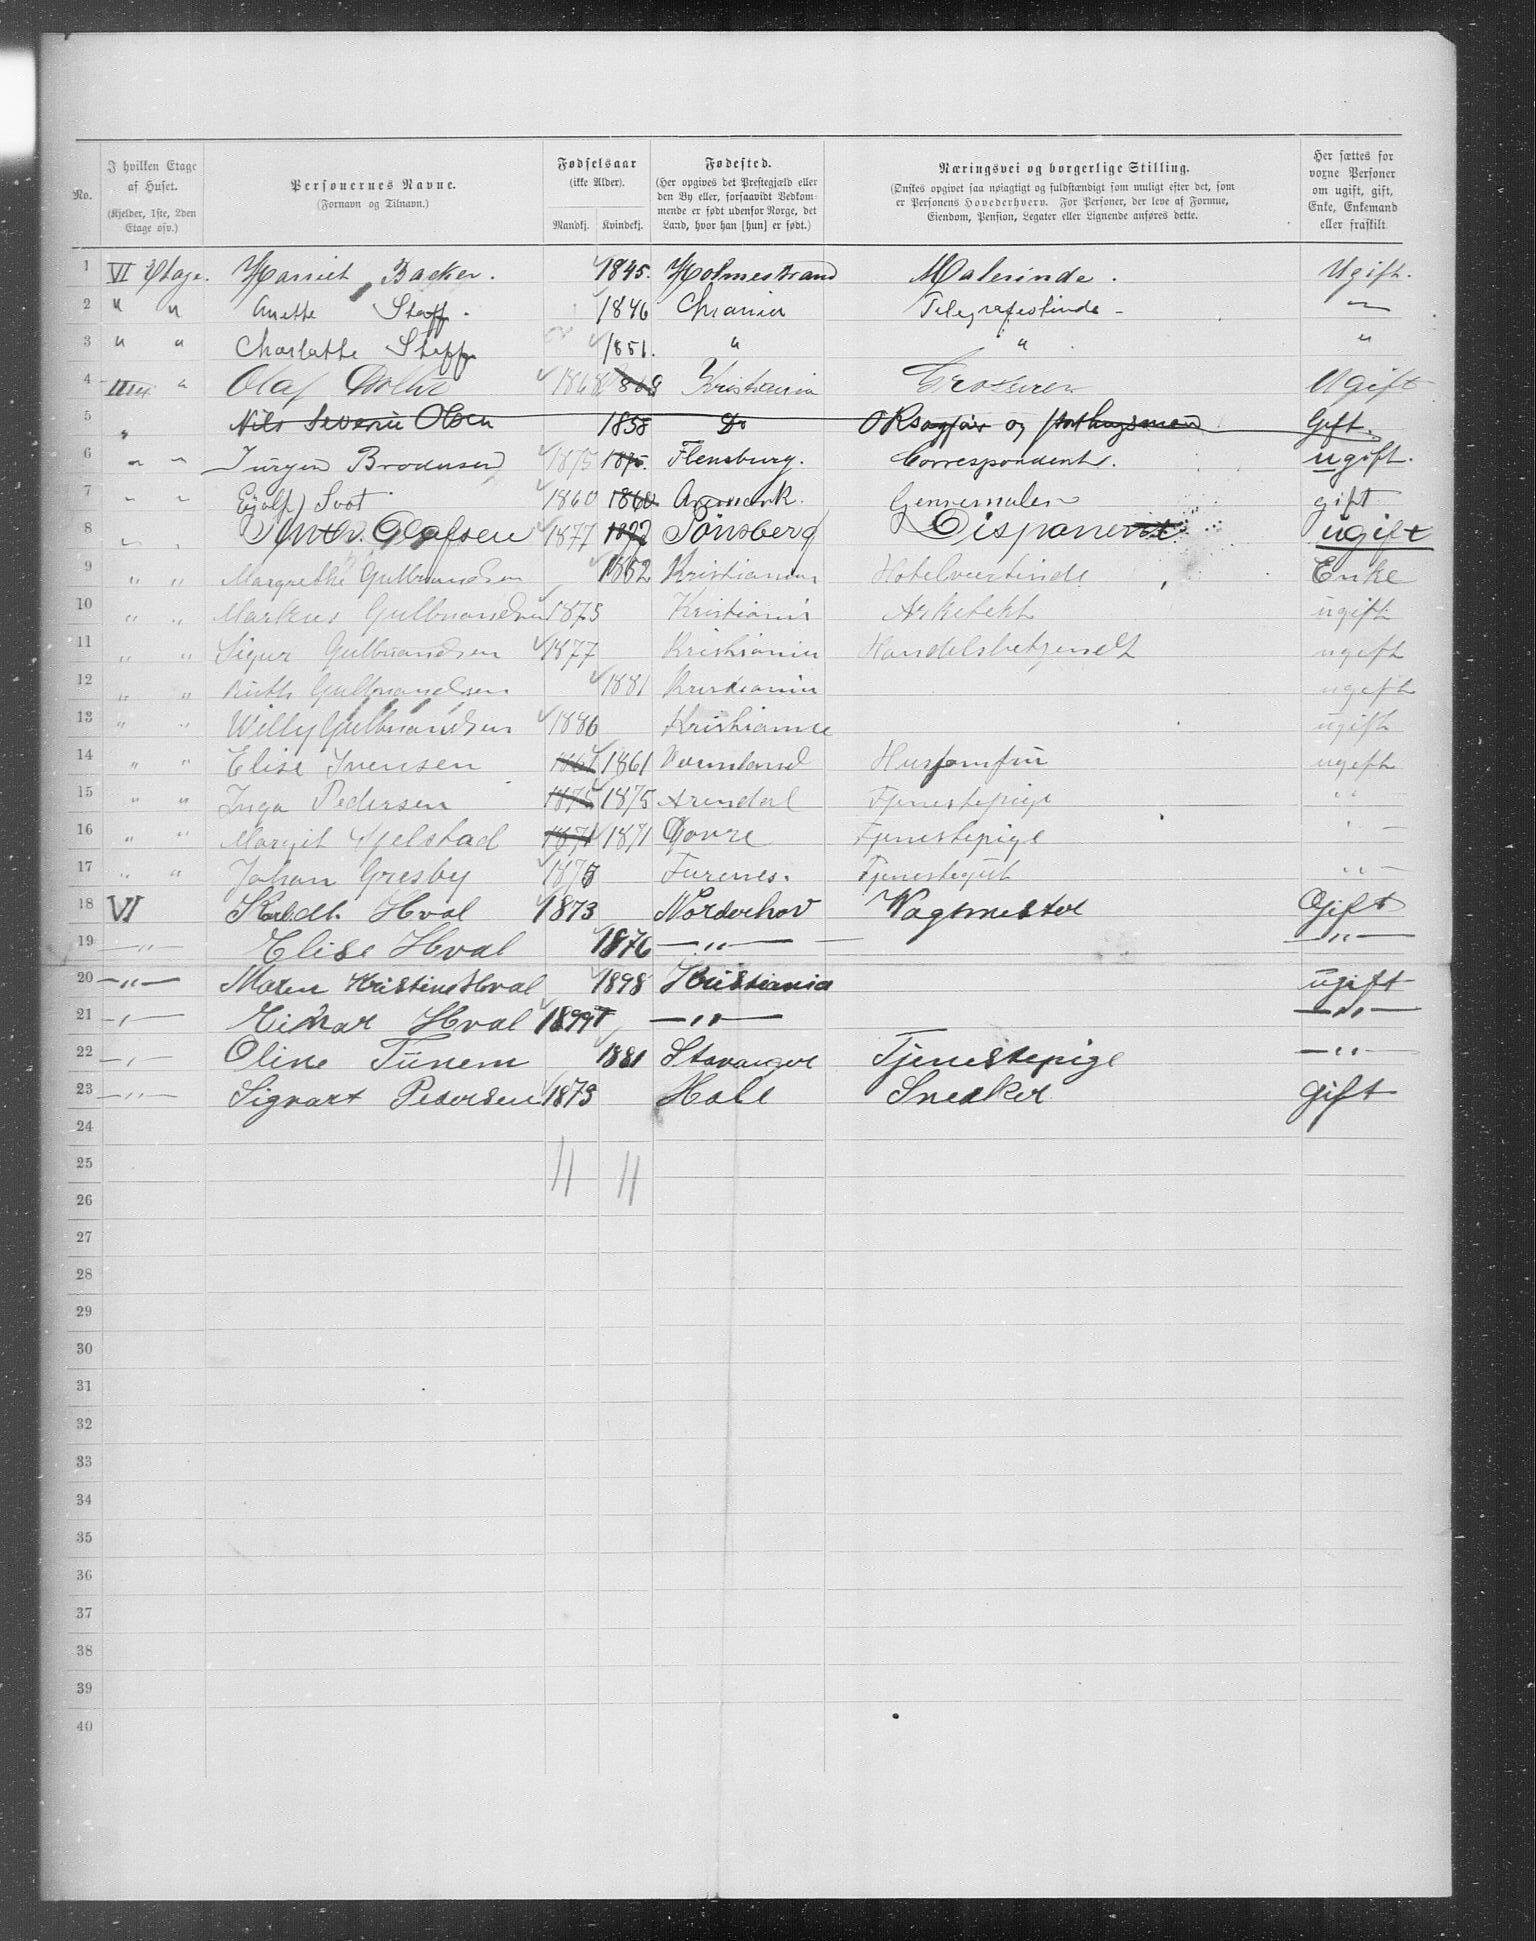 No. | I hvilken Etage af Huset. (Kjelder, 1ste, 2den Etage osv.) | Personernes Navne. (Fornavn og Tilnavn.) | Fødselsaar (ikke Alder). Mandkj. | Kvindekj. | Fødested. (Her opgives det Prestegjæld eller den By eller, forsaavidt Vedkommende er født udenfor Norge, det Land, hvor han [hun] er født.) | Næringsvei og borgerlige Stilling. (Ønskes opgivet saa nøiagtigt og fuldstændigt som muligt efter det, som er Personens Hovederhverv. For Personer, der leve af Formue, Eiendom, Pension, Legater eller Lignende anføres dette. | Her sættes for voxne Personer om ugift, gift, Enke, Enkemand eller fraskilt.
1 VI Etage. Harriet Backer. 1845. Holmestrand Malerinde. Ugift.
2 " " Anette Staff. 1846 Chrania Telegrafistinde - "
3 " " Charlotte Staff 1851. " " "
4 IIII " Olaf 1868 1868 Kristiania Grosserer Ugift
5 " Nils Severin Olsen 1858 Do ORsagfør og Gift.
6 " " Jürgen Brodersen 1875 1875. Flensburg. Correspondent. ugift.
7 " " Eyolf Soot 1860 1860 Aremark. Genremaler gift
8 " " Olafsen 1877 1877 Tönsberg Disponent ugift
9 " " Margrethe Gulbrandsen 1852 Kristiania Hotelvertinde Enke
10 " " Markus Gulbrandsen 1875 Kristiania Arkitekt ugift
11 " " Sigur Gulbrandsen 1877 Kristiania Handelsbetjendt ugift
12 " " Ruth Gulbrandsen 1881 Kristiania ugift
13 " " Willy Gulbrandsen 1886 Kristiania ugift
14 " " Elise Ivensen 1861 1861 Vermland Husjomfru ugift
15 " " Inga Pedersen 1875 1875 Arendal Tjenestepige " "
16 " " Margit Hjelstad 1871 1871 Dovre Tjenestepige " -
17 " " Johan Gresby 1875 Furenes. Tjenestegut " " -
18 VI Hval 1873 Norderhov Vagtmester Gift
19 — " — Elise Hval 1876 — " — — " —
20 — " — Maren Kristine Hval 1898 Kristiania ugift
21 — " — Einar Hval 1899 — " — — " —
22 — " — Oline Tünem 1881 Stavanger Tjenestepige — " —
23 — " — Sigvart Pedersen 1873 Hole Snedker gift
24
25 11 11
26
27
28
29
30
31
32
33
34
35
36
37
38
39
40